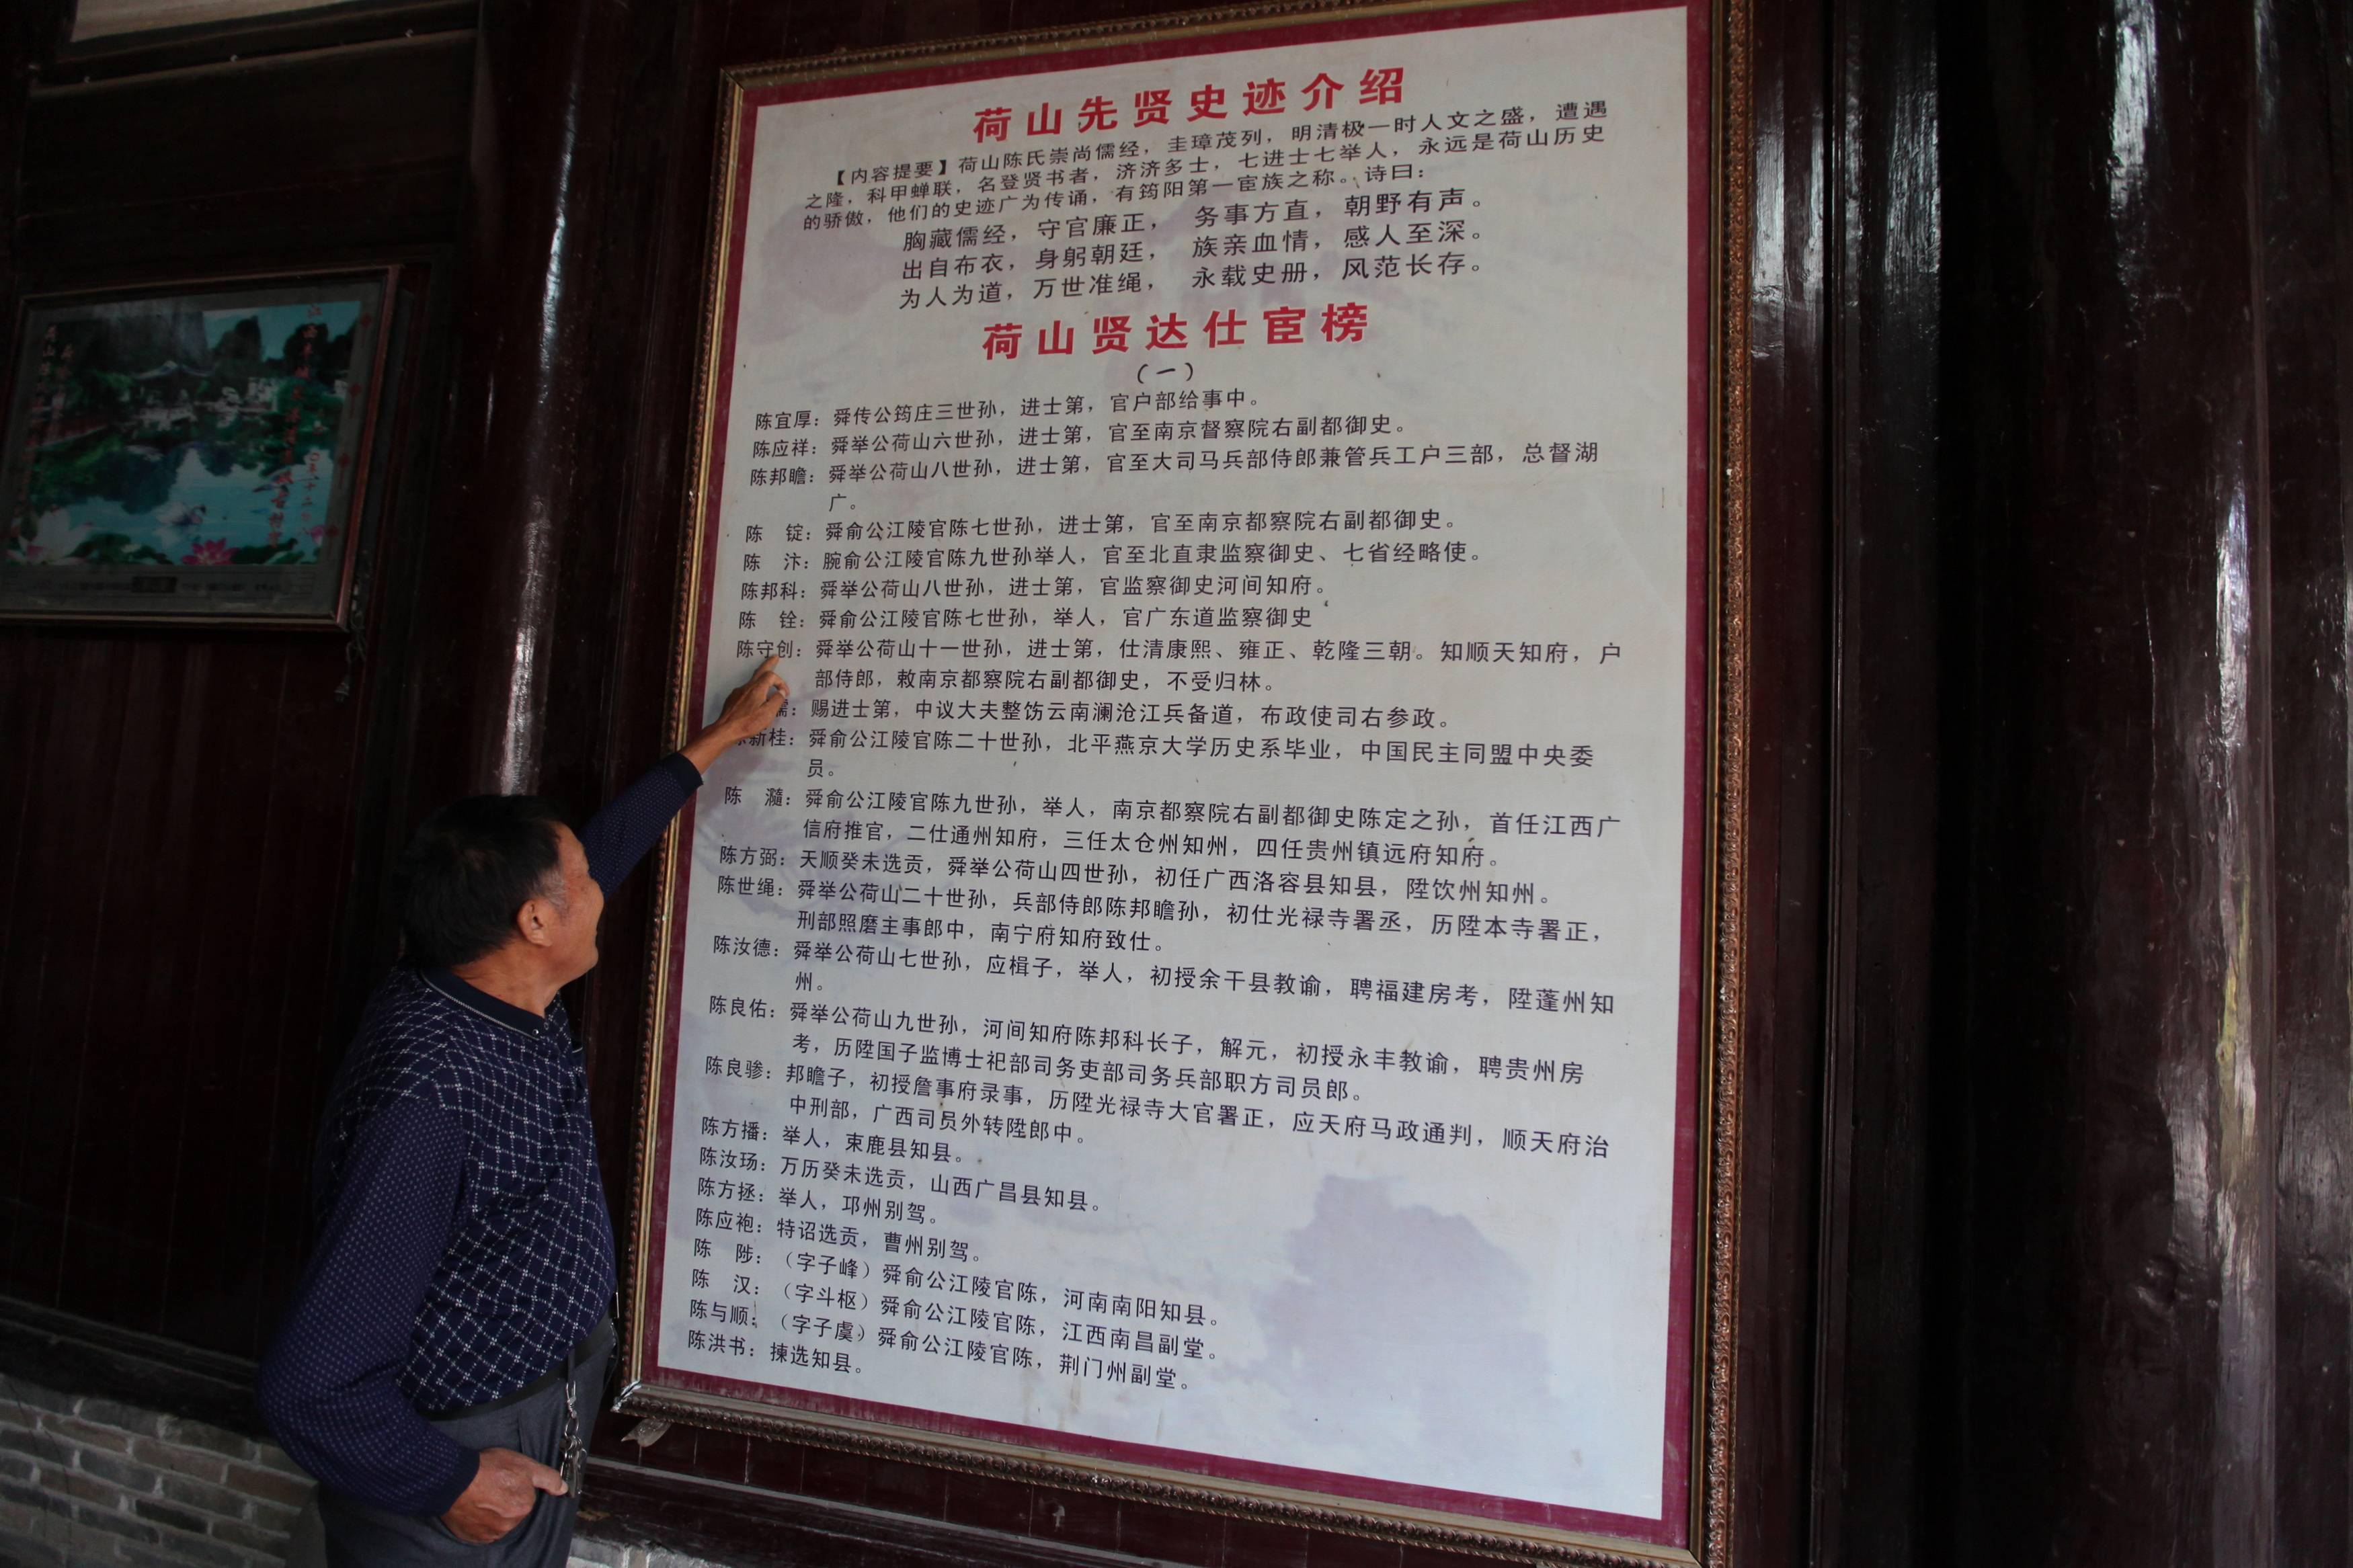 荷山先贤史迹介绍
【内容提要】荷山陈氏崇尚儒经，圭璋茂列，明清极一时人文之盛，遭遇
之隆，科甲蝉联，名登贤书者，济济多士，七进士七举人，永远是荷山历史
的骄傲，他们的史迹广为传诵，有筠阳第一宦族之称。诗曰：
胸藏儒经，守官廉正， 务事方直，朝野有声。
出自布衣，身躬朝廷， 族亲血情，感人至深。
为人为道，万世准绳， 永载史册，风范长存。
荷山贤达仕宦榜
（一）
陈宜厚：舜传公筠庄三世孙，进士第，官户部给事中。
陈应祥：舜举公荷山六世孙，进士第，官至南京督察院右副都御史。
陈邦瞻：舜举公荷山八世孙，进士第，官至大司马兵部侍郎兼管兵工户三部，总督湖
广。
陈 锭：舜俞公江陵官陈七世孙，进士第，官至南京都察院右副都御史。
陈 汴：腕俞公江陵官陈九世孙举人，官至北直隶监察御史、七省经略使。
陈邦科：舜举公荷山八世孙，进士第，官监察御史河间知府。
陈 铨：舜俞公江陵官陈七世孙，举人，官广东道监察御史
陈守创：舜举公荷山十一世孙，进士第，仕清康熙、雍正、乾隆三朝。知顺天知府，户
部侍郎，敕南京都察院右副都御史，不受归林。
儒：赐进士第，中议大夫整饬云南澜沧江兵备道，布政使司右参政。
陈新桂：舜俞公江陵官陈二十世孙，北平燕京大学历史系毕业，中国民主同盟中央委
员。
陈 灏：舜俞公江陵官陈九世孙，举人，南京都察院右副都御史陈定之孙，首任江西广
信府推官，二仕通州知府，三任太仓州知州，四任贵州镇远府知府。
陈方弼：天顺癸未选贡，舜举公荷山四世孙，初任广西洛容县知县，陞饮州知州。
陈世绳：舜举公荷山二十世孙，兵部侍郎陈邦瞻孙，初仕光禄寺署丞，历陞本寺署正，
刑部照磨主事郎中，南宁府知府致仕。
陈汝德：舜举公荷山七世孙，应楫子，举人，初授余干县教谕，聘福建房考，陞蓬州知
州。
陈良佑：舜举公荷山九世孙，河间知府陈邦科长子，解元，初授永丰教谕，聘贵州房
考，历陞国子监博士祀部司务吏部司务兵部职方司员郎。
陈良骖：邦瞻子，初授詹事府录事，历陞光禄寺大官署正，应天府马政通判，顺天府治
中刑部，广西司员外转陞郎中。
陈方播：举人，束鹿县知县。
陈汝玚：万历癸未选贡，山西广昌县知县。
陈方拯：举人，邛州别驾。
陈应袍：特诏选贡，曹州别驾。
陈 陟：（字子峰）舜俞公江陵官陈，河南南阳知县。
陈 汉：（字斗枢）舜俞公江陵官陈，江西南昌副堂。
陈与顺：（字子虞）舜俞公江陵官陈，荆门州副堂。
陈洪书：揀选知县。